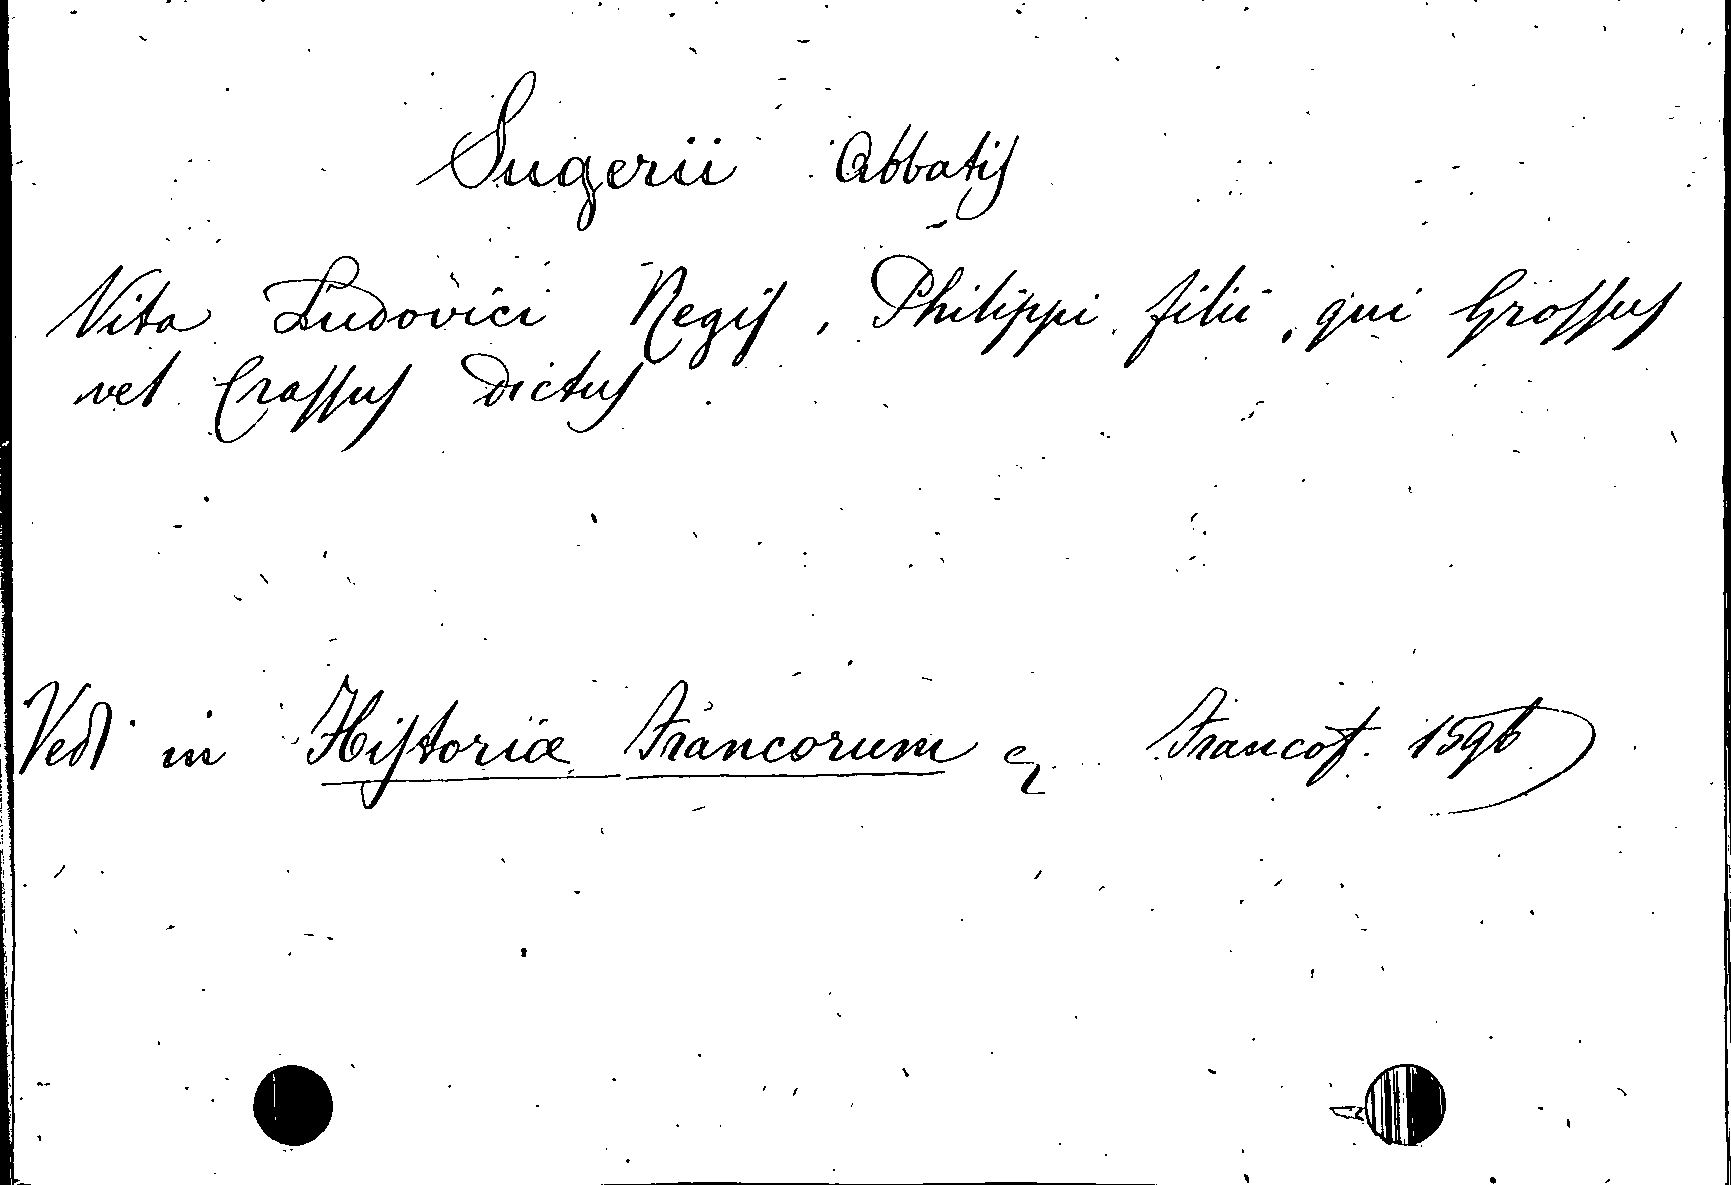 Sugerii Abbatis
Vita Ludovici Regis, Philippi filii, qui Grossus
vel Crassus dictus.
Vedi in Historiæ Francorum Francof. 1596